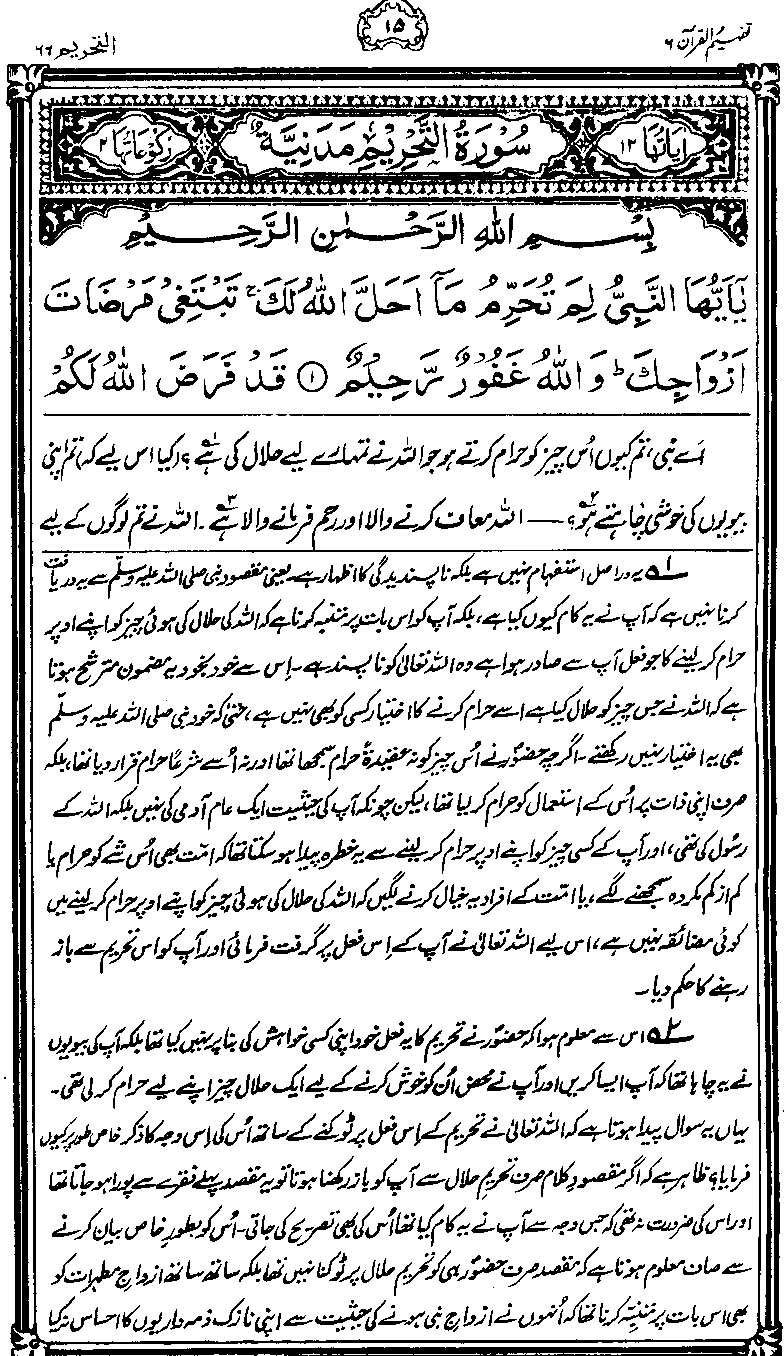 تفہیم القرآن ۶
۱۵
التحریم ۶۶
اٰیاتھا ۱۲
سُوْرَةُ التَّحْرِیْمِ مَدَنِیَّةٌ
رکوعاتھا ۲
بِسْمِ اللهِ الرَّحْمٰنِ الرَّحِیْمِ
یٰۤاَیُّهَا النَّبِیُّ لِمَ تُحَرِّمُ مَاۤ اَحَلَّ اللهُ لَكَ ۚ تَبْتَغِیْ مَرْضَاتَ
اَزْوَاجِكَ ؕ وَاللهُ غَفُوْرٌ رَّحِیْمٌ ﴿۱﴾ قَدْ فَرَضَ اللهُ لَكُمْ
اَے نبی، تم کیوں اُس چیز کو حرام کرتے ہو جو اللہ نے تمہارے لیے حلال کی ہے۱؟ (کیا اس لیے کہ) تم اپنی
بیویوں کی خوشی چاہتے ہو۲؟ — اللہ معاف کرنے والا اور رحم فرمانے والا ہے۳۔ اللہ نے تم لوگوں کے لیے
۱ یہ دراصل استفہام نہیں ہے بلکہ ناپسندیدگی کا اظہار ہے۔ یعنی مقصود نبی صلی اللہ علیہ وسلّم سے یہ دریافت
کرنا نہیں ہے کہ آپ نے یہ کام کیوں کیا ہے، بلکہ آپ کو اس بات پر متنبہ کرنا ہے کہ اللہ کی حلال کی ہوئی چیز کو اپنے اوپر
حرام کر لینے کا جو فعل آپ سے صادر ہوا ہے وہ اللہ تعالیٰ کو ناپسند ہے۔ اِس سے خود بخود یہ مضمون مترشح ہوتا
ہے کہ اللہ نے جس چیز کو حلال کیا ہے اسے حرام کرنے کا اختیار کسی کو بھی نہیں ہے، حتیٰ کہ خود نبی صلی اللہ علیہ وسلّم
بھی یہ اختیار نہیں رکھتے۔ اگرچہ حضورؐ نے اُس چیز کو نہ عقیدۃً حرام سمجھا تھا اور نہ اُسے شرعاً حرام قرار دیا تھا، بلکہ
صرف اپنی ذات پر اُس کے استعمال کو حرام کر لیا تھا، لیکن چونکہ آپ کی حیثیت ایک عام آدمی کی نہیں بلکہ اللہ کے
رسول کی تھی، اور آپ کے کسی چیز کو اپنے اوپر حرام کر لینے سے یہ خطرہ پیدا ہو سکتا تھا کہ امّت بھی اُس شے کو حرام یا
کم از کم مکروہ سمجھنے لگے، یا امت کے افراد یہ خیال کرنے لگیں کہ اللہ کی حلال کی ہوئی چیز کو اپنے اوپر حرام کر لینے میں
کوئی مضائقہ نہیں ہے، اس لیے اللہ تعالیٰ نے آپ کے اِس فعل پر گرفت فرمائی اور آپ کو اس تحریم سے باز
رہنے کا حکم دیا۔
۲ اس سے معلوم ہوا کہ حضورؐ نے تحریم کا یہ فعل خود اپنی کسی خواہش کی بنا پر نہیں کیا تھا بلکہ آپ کی بیویوں
نے یہ چاہا تھا کہ آپ ایسا کریں اور آپ نے محض اُن کو خوش کرنے کے لیے ایک حلال چیز اپنے لیے حرام کر لی تھی۔
یہاں یہ سوال پیدا ہوتا ہے کہ اللہ تعالیٰ نے تحریم کے اِس فعل پر ٹوکنے کے ساتھ اُس کی اِس وجہ کا ذکر خاص طور پر کیوں
فرمایا؟ ظاہر ہے کہ اگر مقصودِ کلام صرف تحریمِ حلال سے آپ کو باز رکھنا ہوتا تو یہ مقصد پہلے فقرے سے پورا ہو جاتا تھا
اور اس کی ضرورت نہ تھی کہ جس وجہ سے آپ نے یہ کام کیا تھا اُس کی بھی تصریح کی جاتی۔ اُس کو بطورِ خاص بیان کرنے
سے صاف معلوم ہوتا ہے کہ مقصد صرف حضورؐ ہی کو تحریمِ حلال پر ٹوکنا نہیں تھا بلکہ ساتھ ساتھ ازواجِ مطہرات کو
بھی اس بات پر متنبّہ کرنا تھا کہ اُنہوں نے ازواجِ نبی ہونے کی حیثیت سے اپنی نازک ذمہ داریوں کا احساس نہ کیا